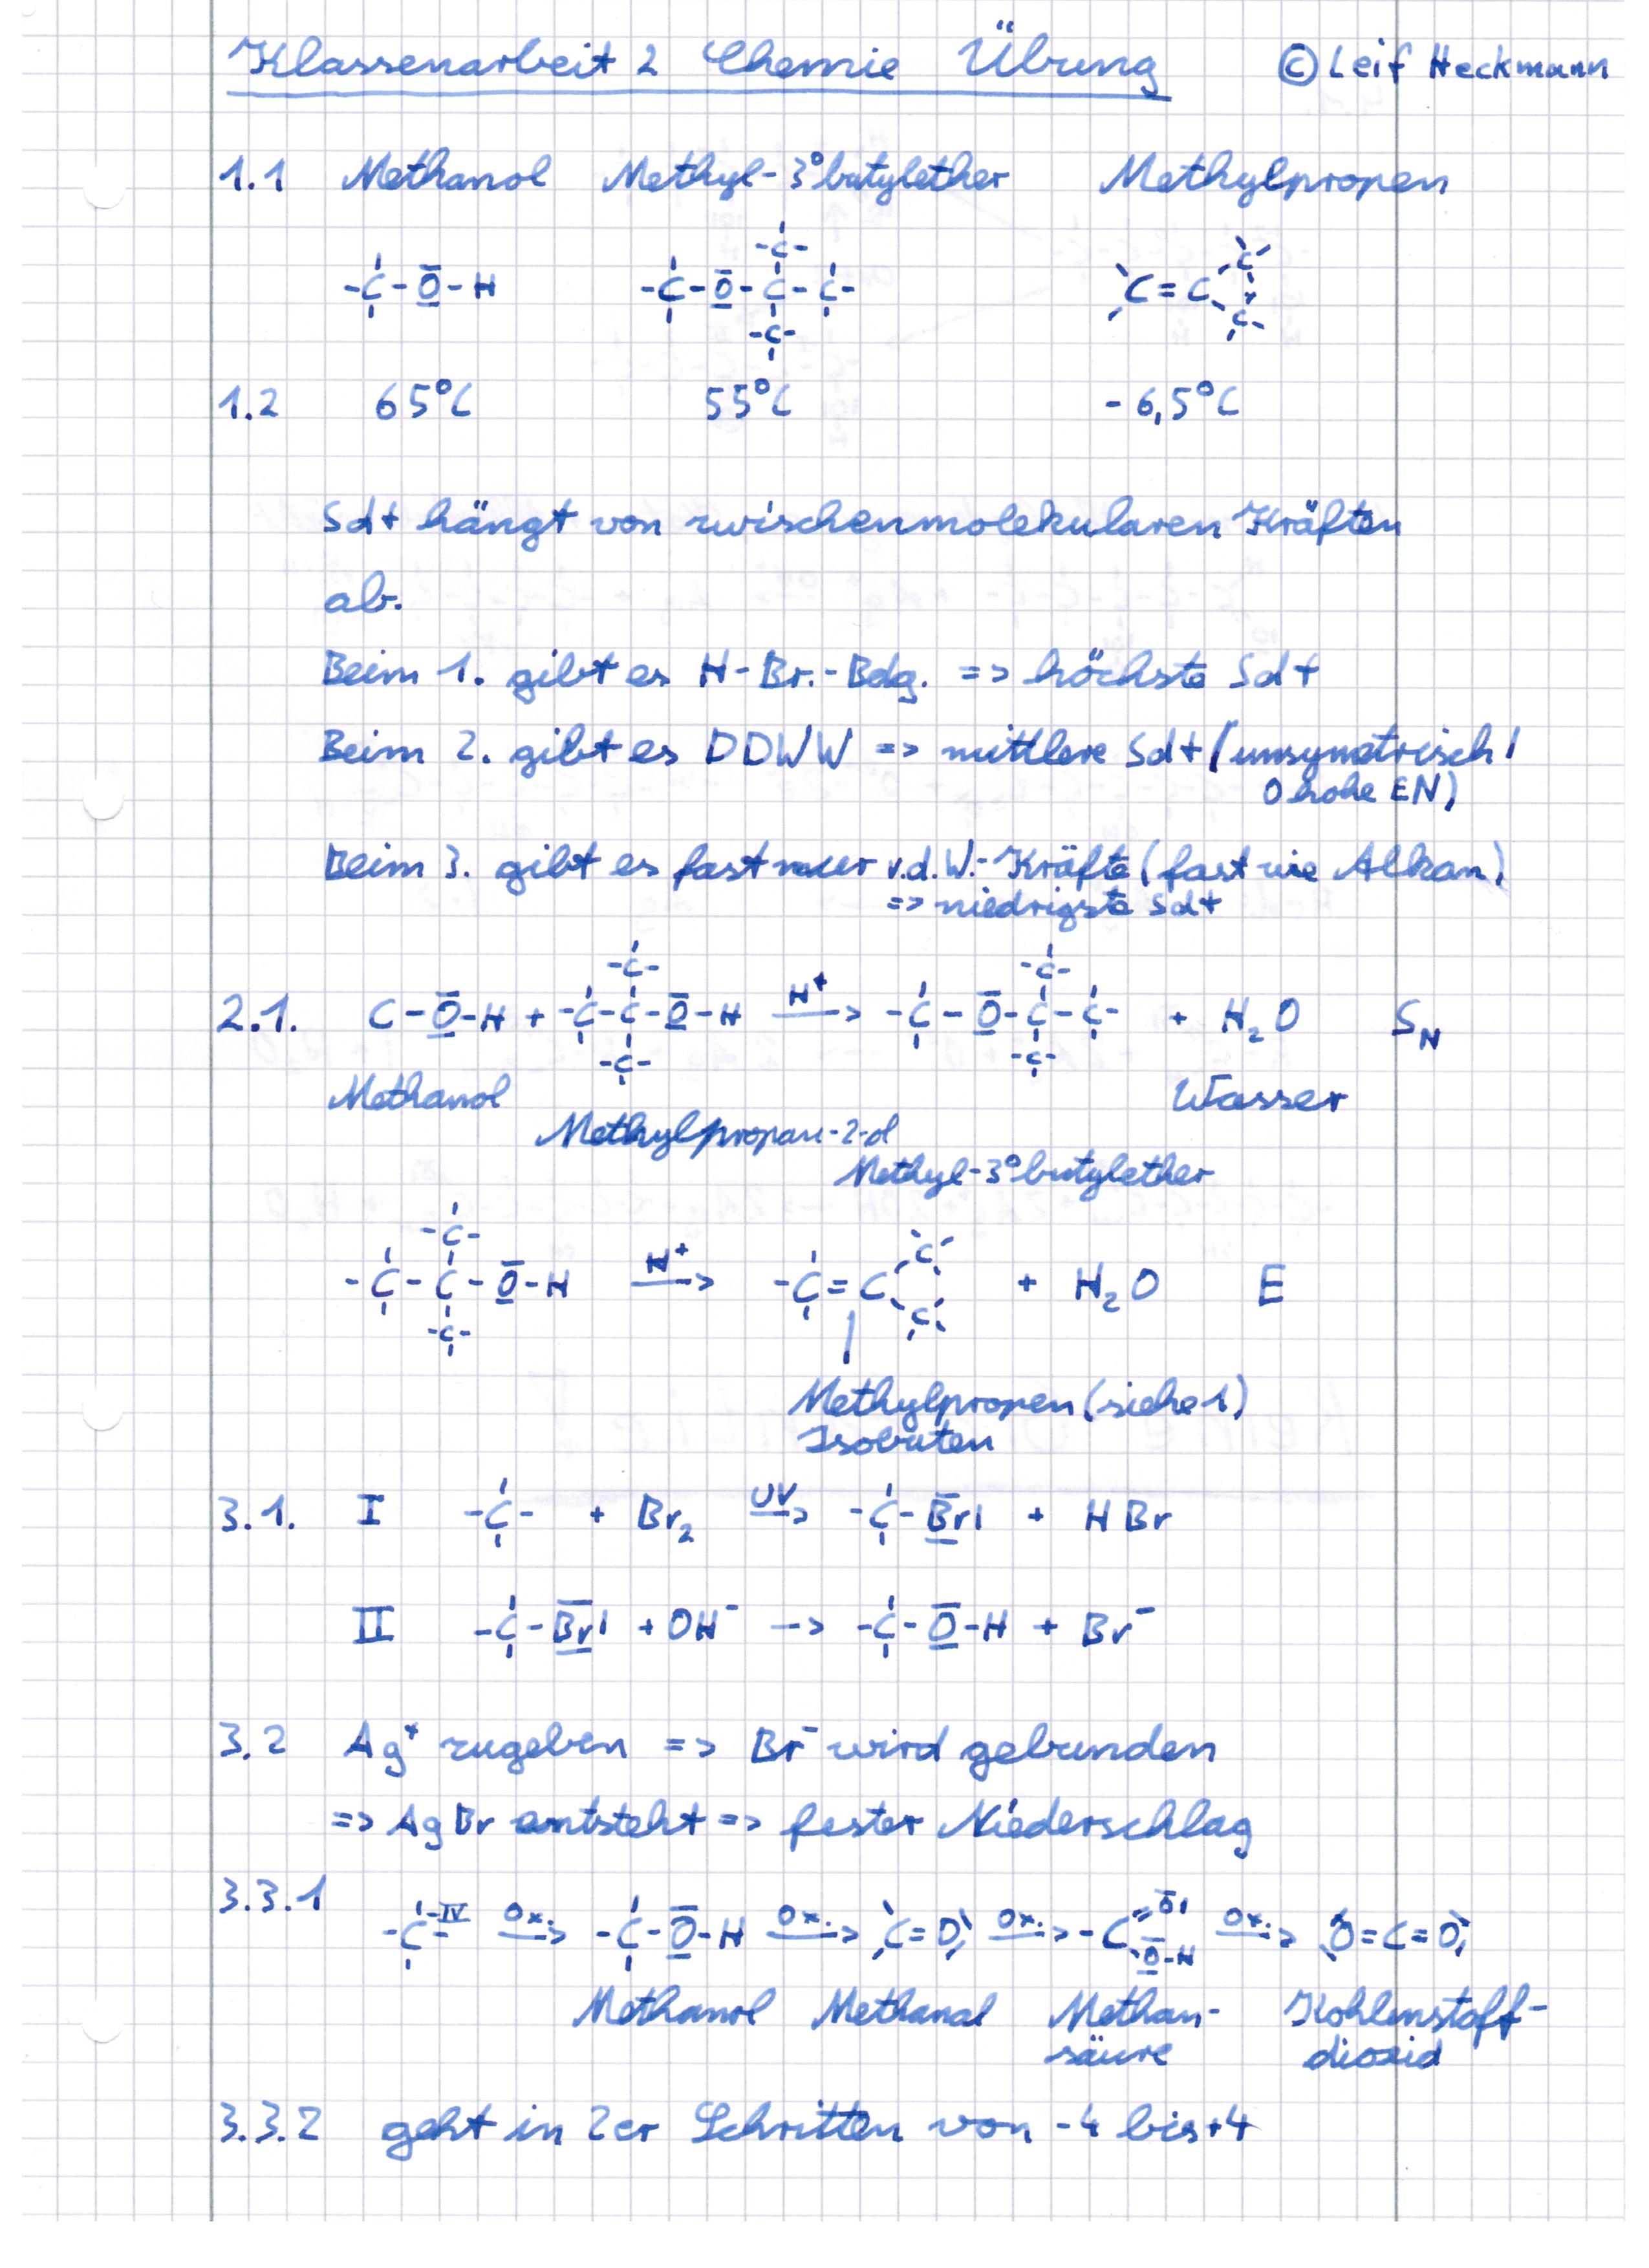 Klassenarbeit 2 Chemie Übung © Leif Heckmann
1.1 Methanol Methyl-3°butylether Methylpropen
-C-O-H -C-O-C-C- C=C
1.2 65°C 55°C -6,5°C
Sdt hängt von zwischenmolekularen Kräften
ab.
Beim 1. gibt es H-Br.-Bdg. => höchste Sdt
Beim 2. gibt es DDWW => mittlere Sdt (unsymetrisch /
O hohe EN)
Beim 3. gibt es fast nur v.d.W.-Kräfte (fast wie Alkan)
=> niedrigste Sdt
2.1. C-O-H + -C-C-O-H H+ --> -C-O-C-C- + H2O SN
Methanol Wasser
Methylpropan-2-ol
Methyl-3°butylether
-C-C-O-H H+ --> -C=C + H2O E
Methylpropen (siehe 1)
Isobuten
3.1. I -C- + Br2 UV --> -C-Br| + HBr
II -C-Br| + OH- --> -C-O-H + Br-
3.2 Ag+ zugeben => Br- wird gebunden
=> AgBr entsteht => fester Niederschlag
3.3.1 -C- -IV Ox. --> -C-O-H Ox. --> C=O Ox. --> -C=O| O-H Ox. --> O=C=O
Methanol Methanal Methan- Kohlenstoff-
säure dioxid
3.3.2 geht in 2er Schritten von -4 bis +4